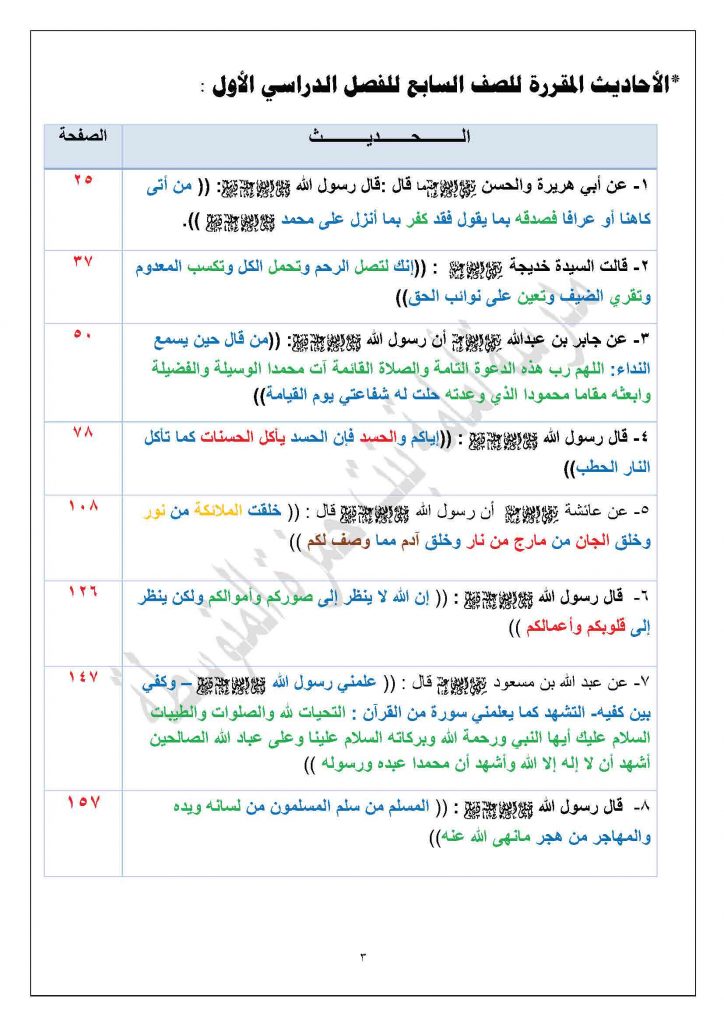 *الأحاديث المقررة للصف السابع للفصل الدراسي الأول :
الـــحـــديـــث
الصفحة
١- عن أبي هريرة والحسن ﷺما قال :قال رسول الله ﷺ: (( من أتى
كاهنا أو عرافا فصدقه بما يقول فقد كفر بما أنزل على محمد ﷺ )).
٢٥
٢- قالت السيدة خديجة : ((إنك لتصل الرحم وتحمل الكل وتكسب المعدوم
وتقري الضيف وتعين على نوائب الحق))
٣٧
٣- عن جابر بن عبدالله أن رسول الله ﷺ: ((من قال حين يسمع
النداء: اللهم رب هذه الدعوة التامة والصلاة القائمة آت محمدا الوسيلة والفضيلة
وابعثه مقاما محمودا الذي وعدته حلت له شفاعتي يوم القيامة))
٥٠
٤- قال رسول الله ﷺ : ((إياكم والحسد فإن الحسد يأكل الحسنات كما تأكل
النار الحطب))
٧٨
٥- عن عائشة أن رسول الله ﷺ قال : (( خلقت الملائكة من نور
وخلق الجان من مارج من نار وخلق آدم مما وصف لكم ))
١٠٨
٦- قال رسول الله ﷺ : (( إن الله لا ينظر إلى صوركم وأموالكم ولكن ينظر
إلى قلوبكم وأعمالكم ))
١٢٦
٧- عن عبد الله بن مسعود قال : (( علمني رسول الله ﷺ – وكفي
بين كفيه- التشهد كما يعلمني سورة من القرآن : التحيات لله والصلوات والطيبات
السلام عليك أيها النبي ورحمة الله وبركاته السلام علينا وعلى عباد الله الصالحين
أشهد أن لا إله إلا الله وأشهد أن محمدا عبده ورسوله ))
١٤٧
٨- قال رسول الله ﷺ : (( المسلم من سلم المسلمون من لسانه ويده
والمهاجر من هجر مانهى الله عنه))
١٥٧
٣